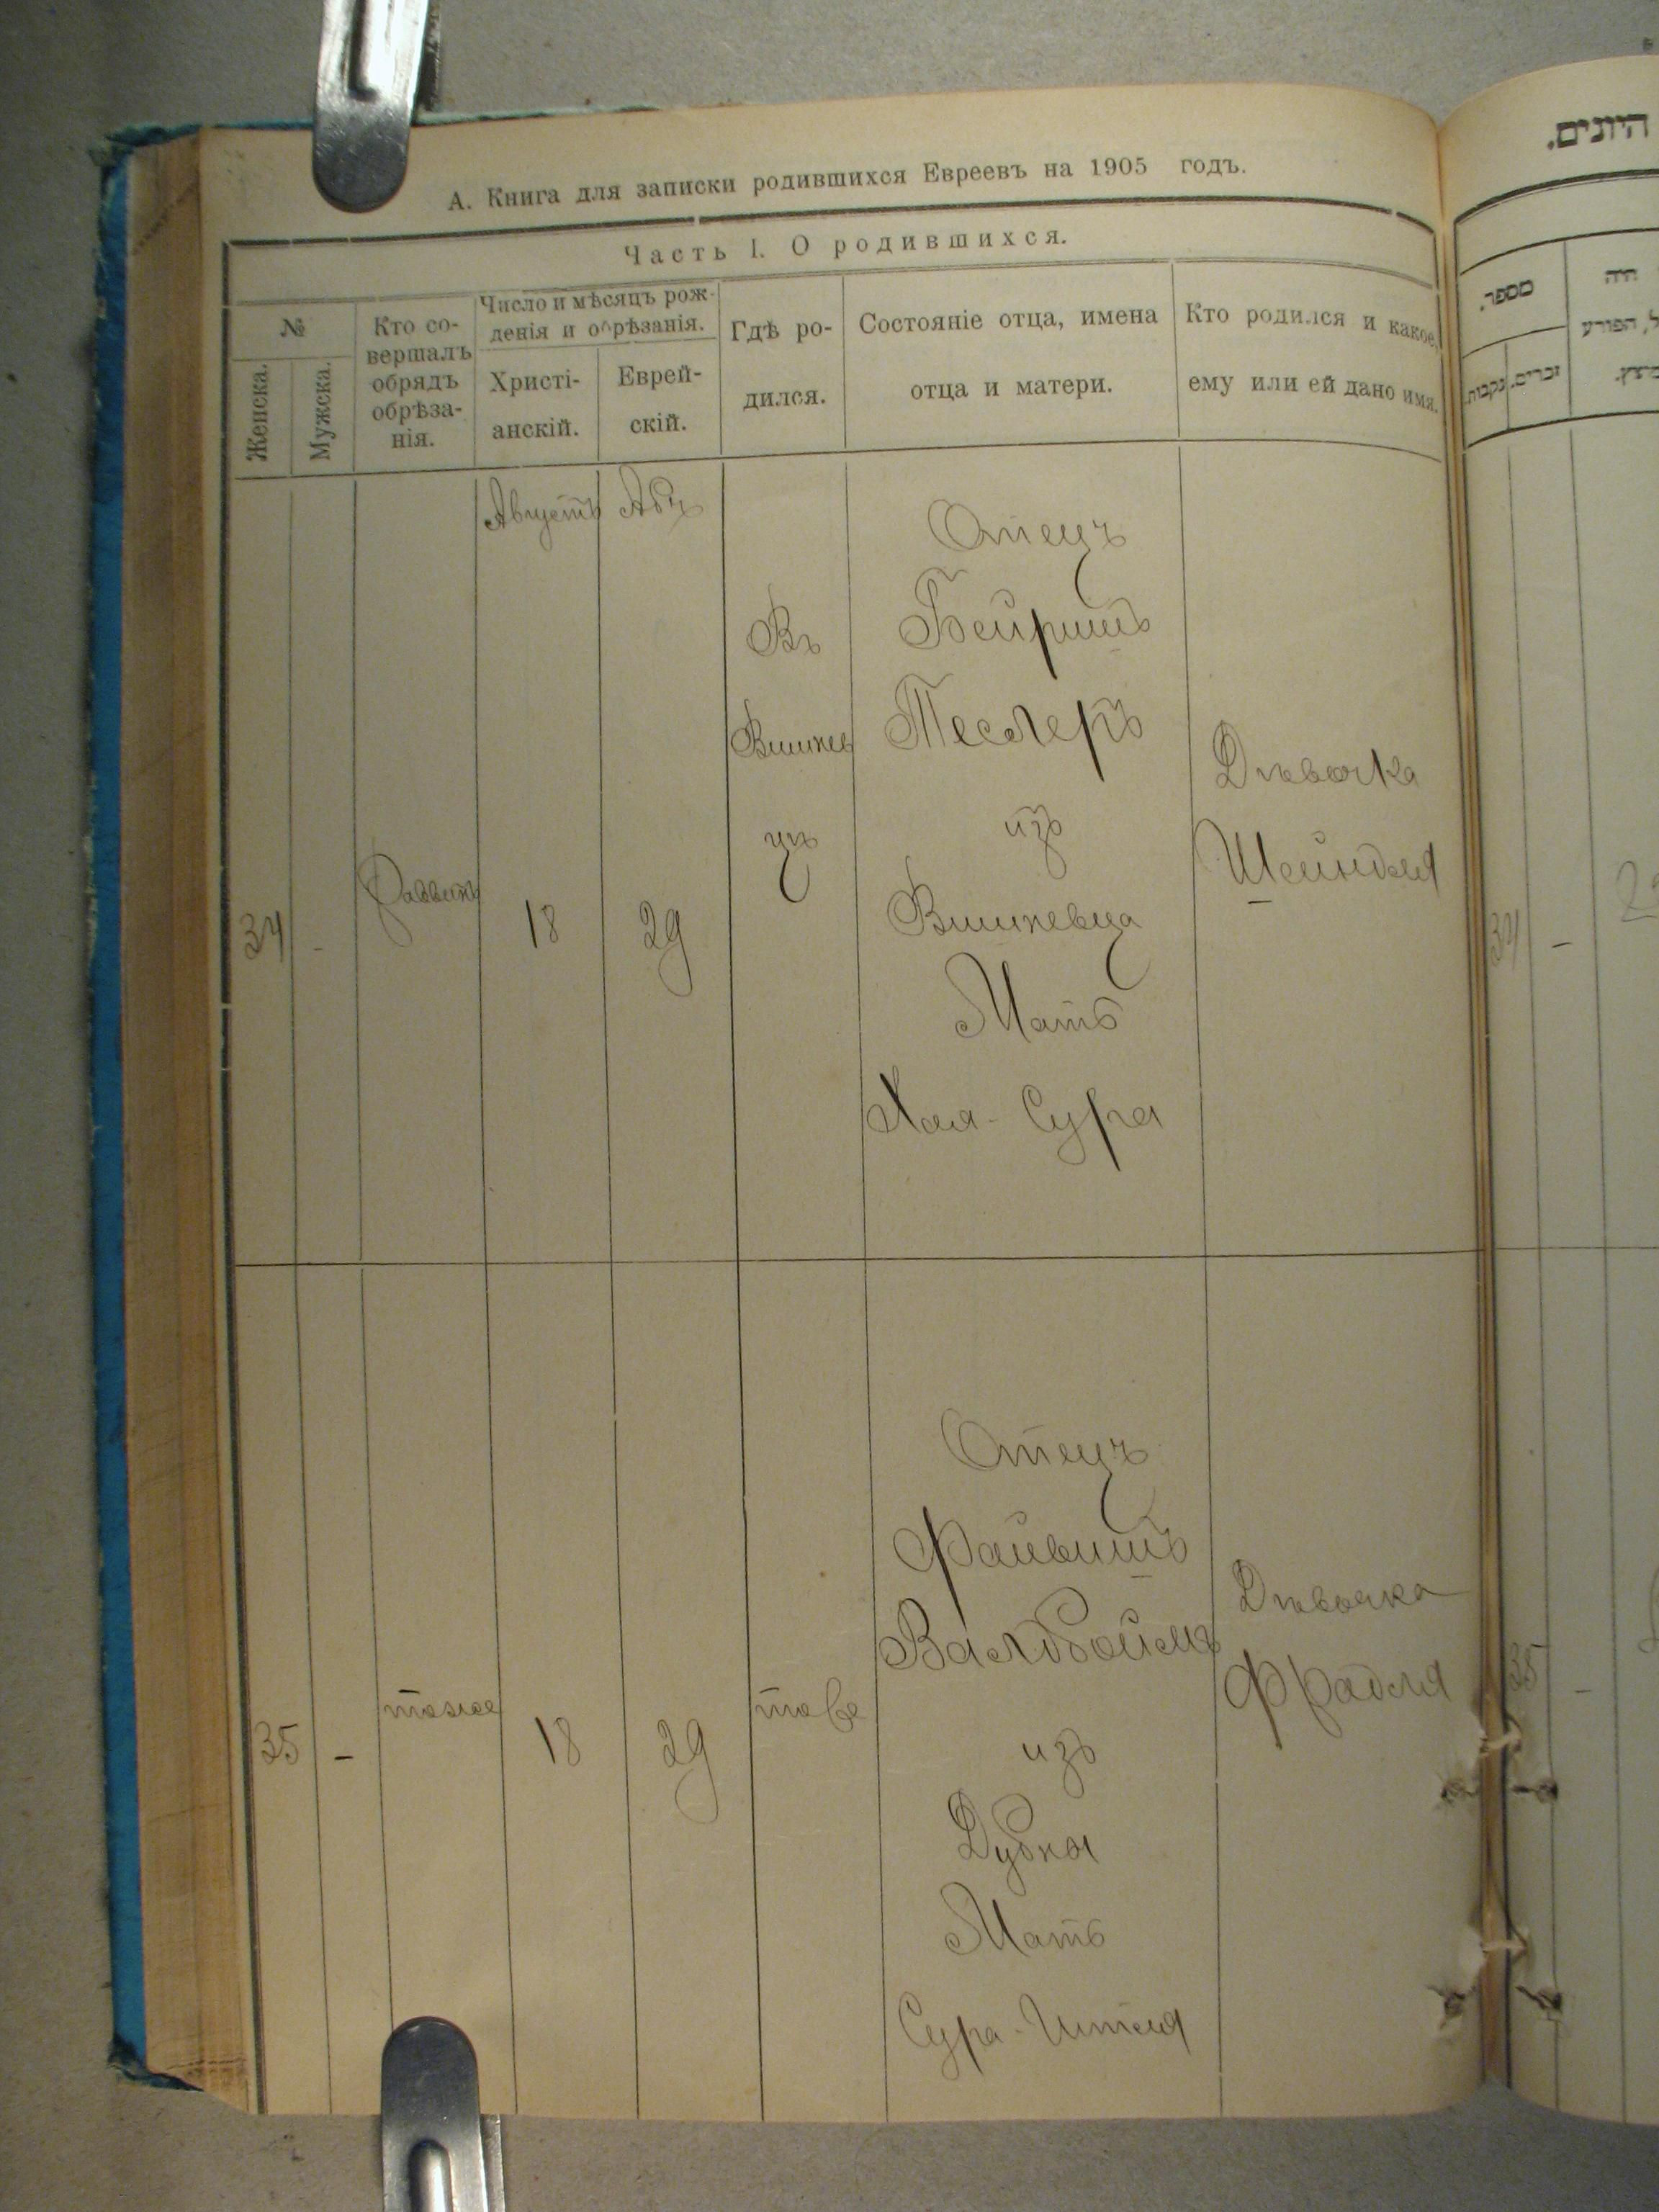 А. Книга для записки родившихся Евреевъ на 1905 годъ.
Часть I. О родившихся.
№
Женска.
Мужска.
Кто со-
вершалъ
обрядъ
обрѣза-
нія.
Число и мѣсяцъ рож-
денія и обрѣзанія.
Христі-
анскій.
Еврей-
скій.
Гдѣ ро-
дился.
Состояніе отца, имена
отца и матери.
Кто родился и какое
ему или ей дано имя.
34
-
Раввинъ
Августъ
18
Абъ
29
Въ
Вишнев
цѣ
Отецъ
Бейришъ
Теслеръ
изъ
Вишневца
Мать
Хая-Сура
Дѣвочка
Шейндля
35
-
тоже
18
29
тоже
Отецъ
Файвишъ
Валдбоймъ
изъ
Дубна
Мать
Сура-Ителя
Дѣвочка
Фрадля
היונים.
מספר.
נקבות.
זכרים.
היה
34
-
35
-